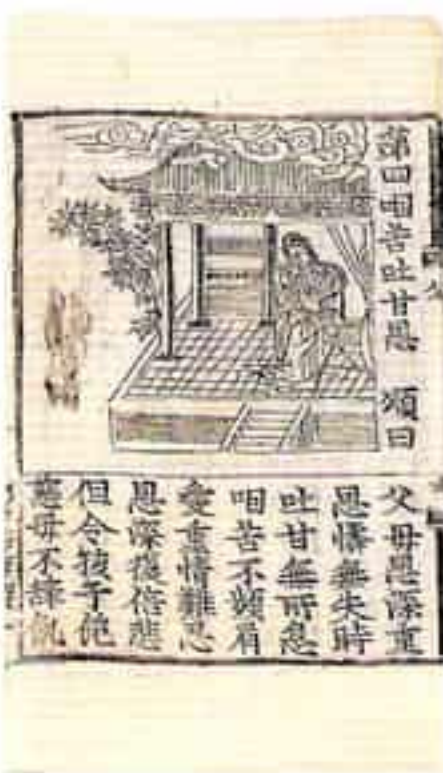 第四咽苦吐甘恩 頌曰
父母恩深重
恩憐無失時
吐甘無所息
咽苦不頻眉
愛重情難忍
恩深復倍悲
但令孩子飽
慈母不辭飢